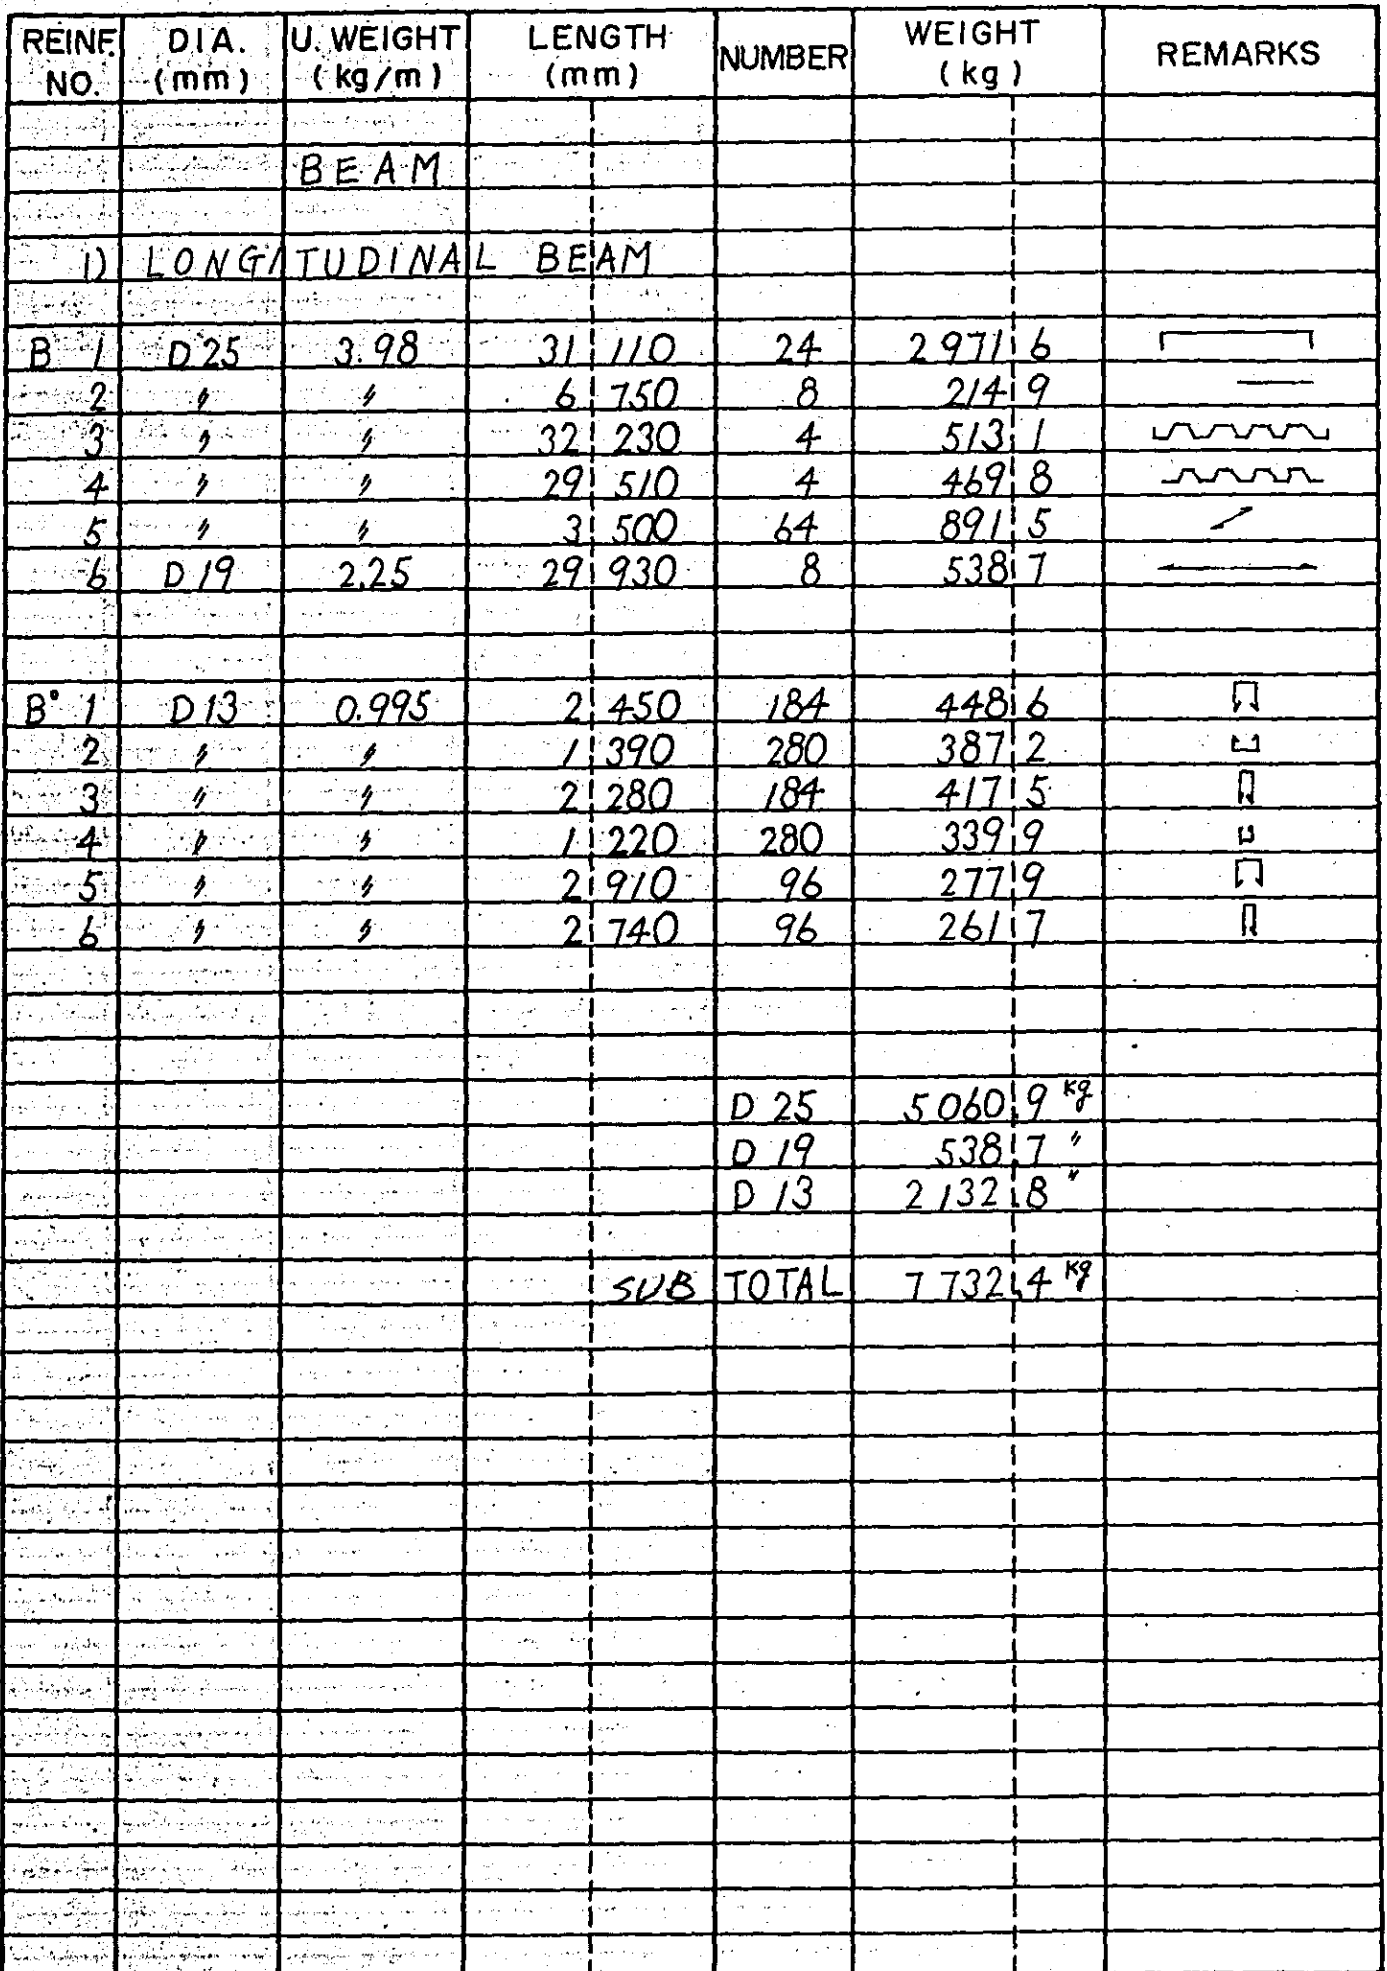 REINF. NO. DIA. (mm) U. WEIGHT (kg/m) LENGTH (mm) NUMBER WEIGHT (kg) REMARKS
BEAM
1) LONGITUDINAL BEAM
B 1 D25 3.98 31 110 24 2 971 6
2 〃 〃 6 750 8 214 9
3 〃 〃 32 230 4 513 1
4 〃 〃 29 510 4 469 8
5 〃 〃 3 500 64 891 5
6 D19 2.25 29 930 8 538 7
B° 1 D13 0.995 2 450 184 448 6
2 〃 〃 1 390 280 387 2
3 〃 〃 2 280 184 417 5
4 〃 〃 1 220 280 339 9
5 〃 〃 2 910 96 277 9
6 〃 〃 2 740 96 261 7
D 25 5 060.9 kg
D 19 538.7 〃
D 13 2 132.8 〃
SUB TOTAL 7 732.4 kg